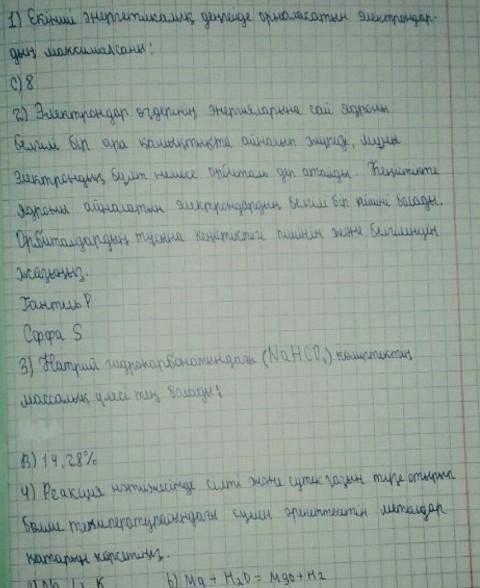 1) Екінші энергетикалық деңгейде орналасатын электрондар-
дың максимал саны:
С) 8
2) Электрондар өздерінің энергияларына сай ядроны
белгілі бір ара қашықтықта айналып жүреді, мұны
электрондық бұлт немесе орбиталь деп атайды. Кеңістікте
ядроны айналатын электрондардың белгілі бір пішіні болады.
Орбитальдардың тұсына кеңістіктегі пішінін және белгіленуін
жазыңыз.
Гантель P
Сфра S
3) Натрий гидрокарбонатындағы (NaHCO₃) көміртектің
массалық үлесі тең болады:
В) 14,28%
4) Реакция нәтижесінде сілті және сутек газын түзе отырып
бөлме температурасындағы сумен әрекеттесетін металдар
қатарын көрсетіңіз.
Na, Li, K b) Mg + H₂O = MgO + H₂